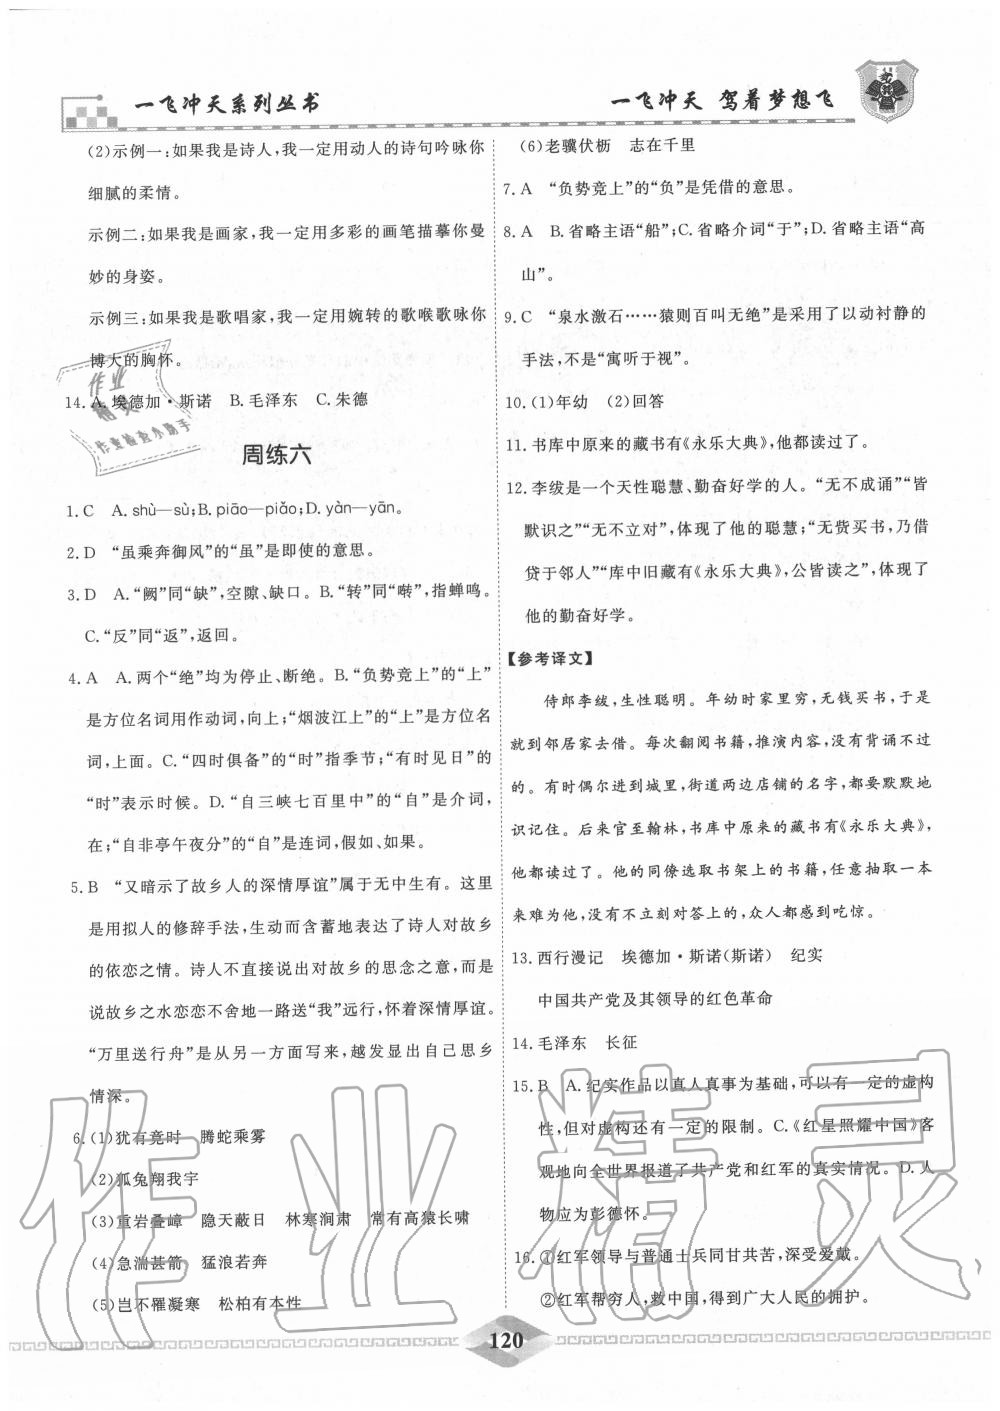 一飞冲天系列丛书
一飞冲天 驾着梦想飞
(2)示例一:如果我是诗人,我一定用动人的诗句吟咏你
细腻的柔情。
示例二:如果我是画家,我一定用多彩的画笔描摹你曼
妙的身姿。
示例三:如果我是歌唱家,我一定用婉转的歌喉歌咏你
博大的胸怀。
14. A. 埃德加·斯诺 B. 毛泽东 C. 朱德
周练六
1. C A. shù—sù;B. piāo—piǎo;D. yàn—yān。
2. D “虽乘奔御风”的“虽”是即使的意思。
3. D A.“阙”同“缺”,空隙、缺口。B.“转”同“啭”,指蝉鸣。
C.“反”同“返”,返回。
4. A A. 两个“绝”均为停止、断绝。B.“负势竞上”的“上”
是方位名词用作动词,向上;“烟波江上”的“上”是方位名
词,上面。C.“四时俱备”的“时”指季节;“有时见日”的
“时”表示时候。D.“自三峡七百里中”的“自”是介词,
在;“自非亭午夜分”的“自”是连词,假如、如果。
5. B “又暗示了故乡人的深情厚谊”属于无中生有。这里
是用拟人的修辞手法,生动而含蓄地表达了诗人对故乡
的依恋之情。诗人不直接说出对故乡的思念之意,而是
说故乡之水恋恋不舍地一路送“我”远行,怀着深情厚谊。
“万里送行舟”是从另一方面写来,越发显出自己思乡
情深。
6. (1)犹有竞时 腾蛇乘雾
(2)狐兔翔我宇
(3)重岩叠嶂 隐天蔽日 林寒涧肃 常有高猿长啸
(4)急湍甚箭 猛浪若奔
(5)岂不罹凝寒 松柏有本性
(6)老骥伏枥 志在千里
7. A “负势竞上”的“负”是凭借的意思。
8. A B. 省略主语“船”;C. 省略介词“于”;D. 省略主语“高
山”。
9. C “泉水激石……猿则百叫无绝”是采用了以动衬静的
手法,不是“寓听于视”。
10. (1)年幼 (2)回答
11. 书库中原来的藏书有《永乐大典》,他都读过了。
12. 李绂是一个天性聪慧、勤奋好学的人。“无不成诵”“皆
默识之”“无不立对”,体现了他的聪慧;“无赀买书,乃借
贷于邻人”“库中旧藏有《永乐大典》,公皆读之”,体现了
他的勤奋好学。
【参考译文】
侍郎李绂,生性聪明。年幼时家里穷,无钱买书,于是
就到邻居家去借。每次翻阅书籍,推演内容,没有背诵不过
的。有时偶尔进到城里,街道两边店铺的名字,都要默默地
识记住。后来官至翰林,书库中原来的藏书有《永乐大典》,
他都读过了。他的同僚选取书架上的书籍,任意抽取一本
来难为他,没有不立刻对答上的,众人都感到吃惊。
13. 西行漫记 埃德加·斯诺(斯诺) 纪实
中国共产党及其领导的红色革命
14. 毛泽东 长征
15. B A. 纪实作品以真人真事为基础,可以有一定的虚构
性,但对虚构还有一定的限制。C.《红星照耀中国》客
观地向全世界报道了共产党和红军的真实情况。D. 人
物应为彭德怀。
16. ①红军领导与普通士兵同甘共苦,深受爱戴。
②红军帮穷人,救中国,得到广大人民的拥护。
120
作业精灵
作业
精灵
作业检查小助手